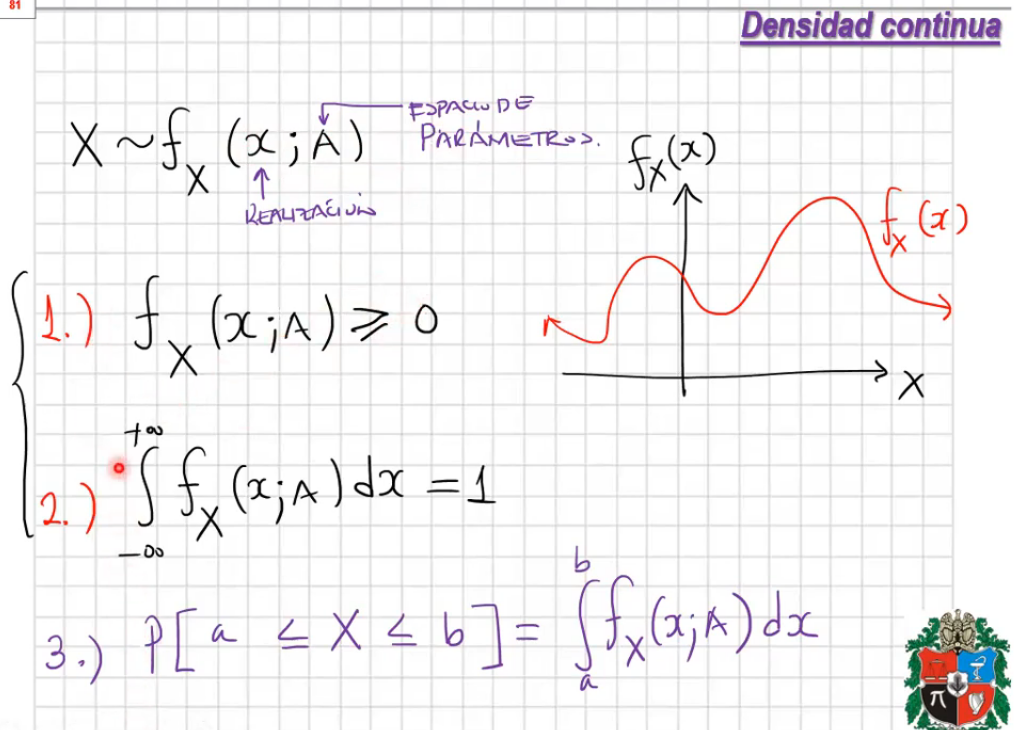 81
Densidad continua
X ~ f_X (x ; A)
ESPACIO DE
PARÁMETROS.
REALIZACIÓN
f_X(x)
f_X (x)
X
1.) f_X (x ; A) ≥ 0
2.) ∫_{-∞}^{+∞} f_X (x ; A) dx = 1
3.) P[ a ≤ X ≤ b ] = ∫_a^b f_X (x ; A) dx
π